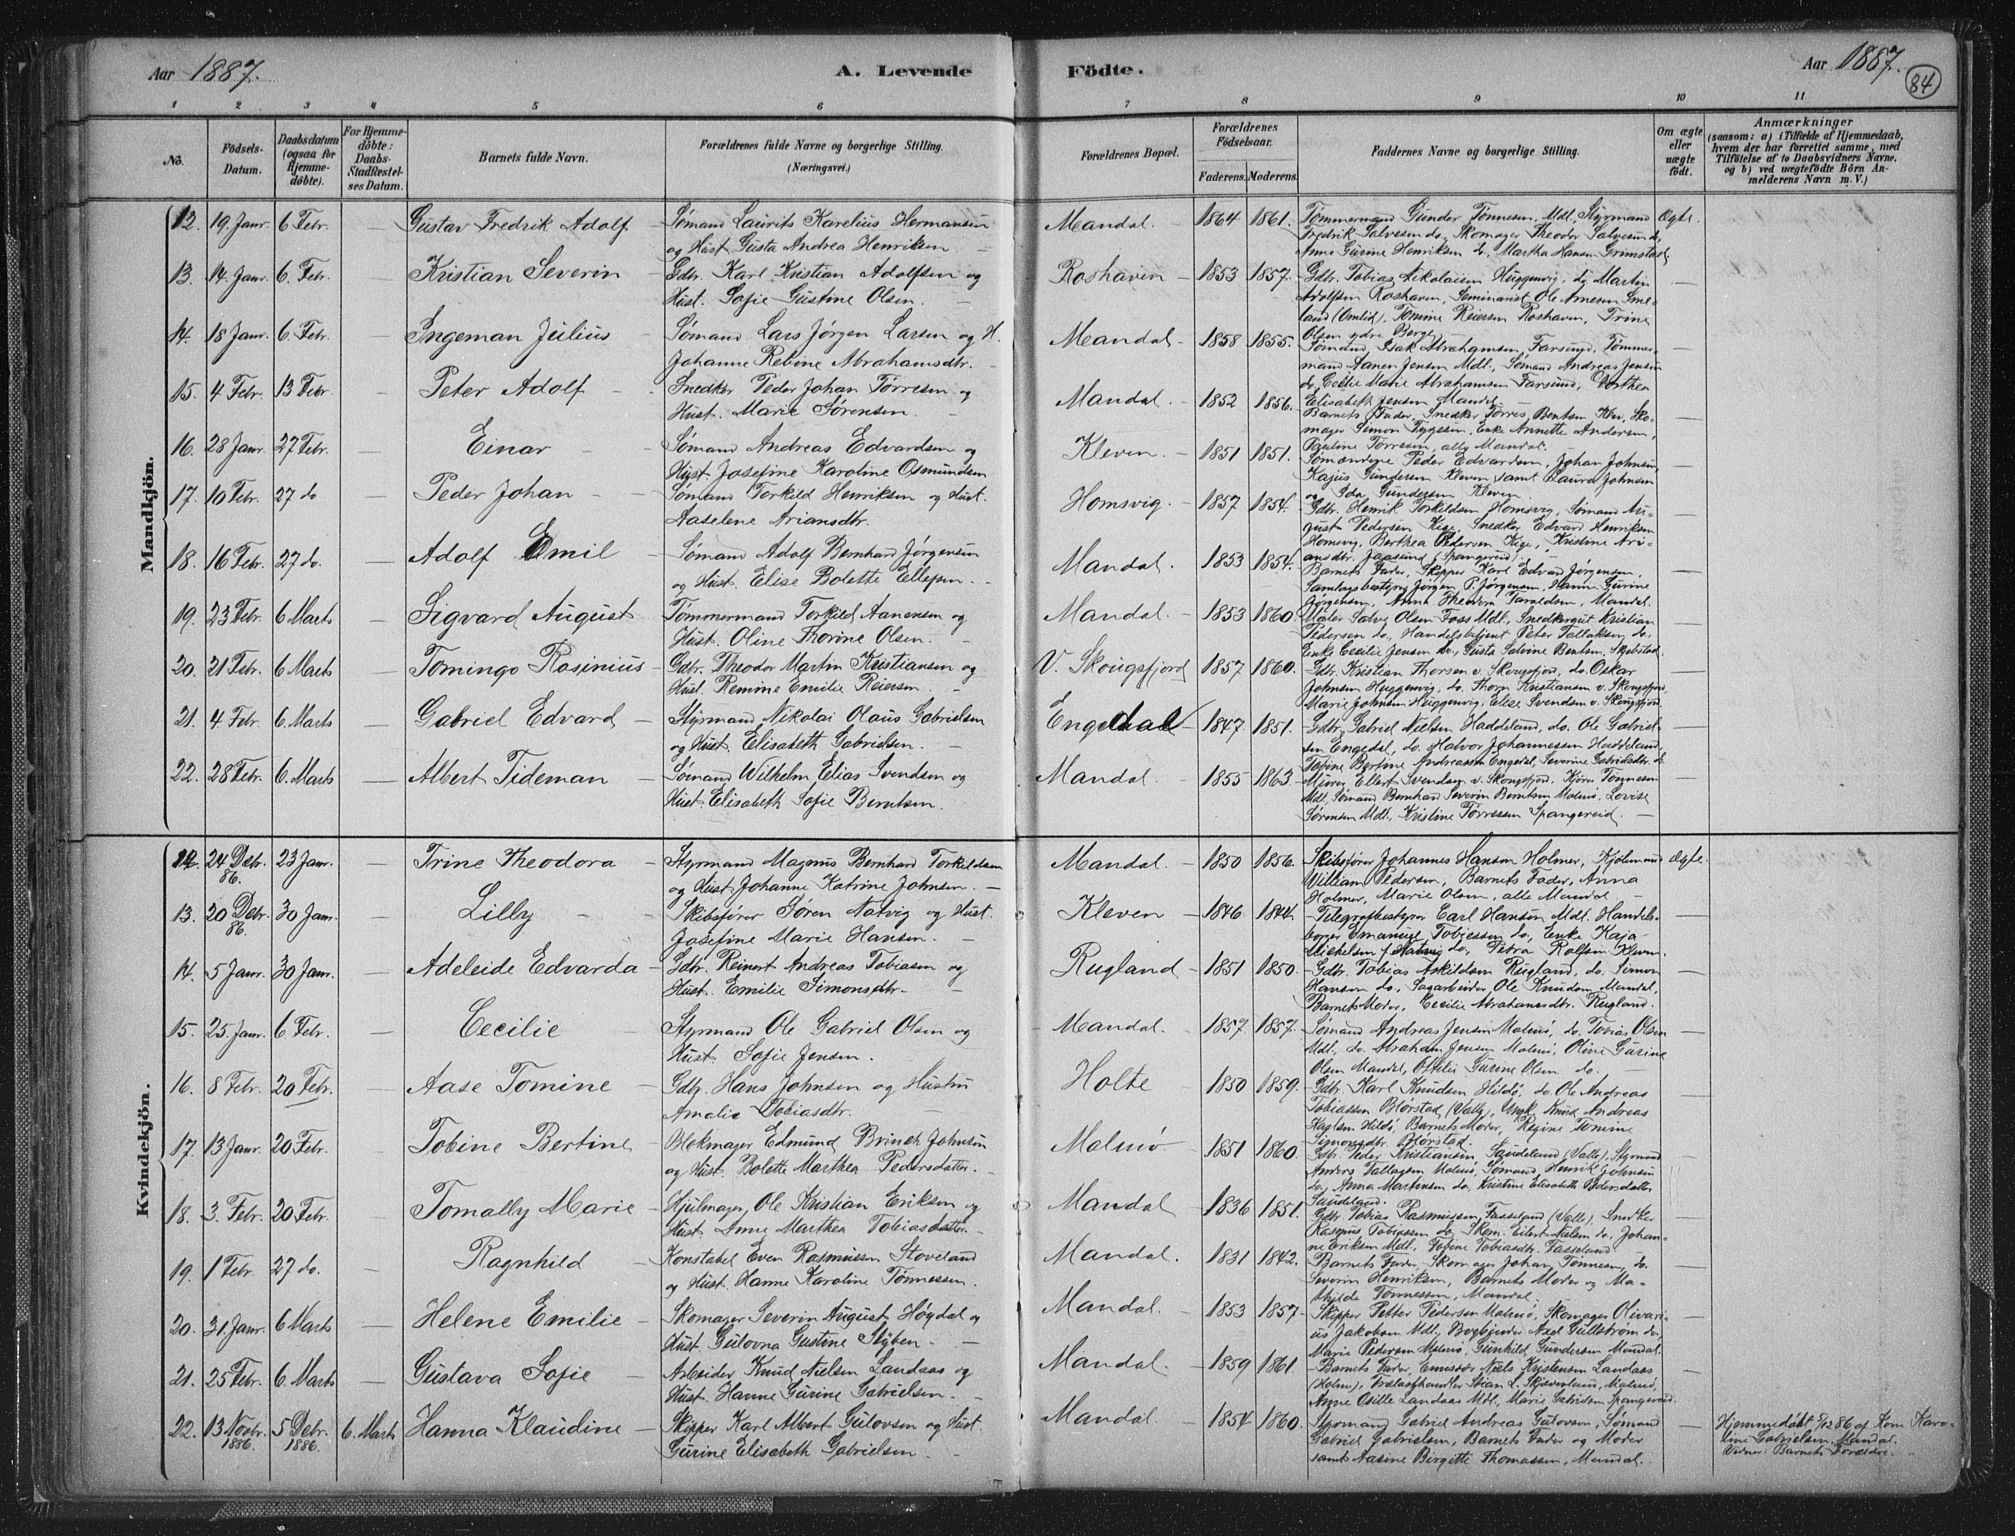 Aar 1887.
A. Levende
Födte.
Aar 1887.
84
1 2 3 4 5 6 7 8 9 10 11
No.
Födsels-Datum.
Daabsdatum (ogsaa for Hjemme-döbte).
For Hjemme-döbte: Daabs-Stadfæstel-ses Datum.
Barnets fulde Navn.
Forældrenes fulde Navne og borgerlige Stilling.
(Næringsvei.)
Forældrenes Bopæl.
Forældrenes Födselsaar.
Faderens. Moderens.
Faddernes Navne og borgerlige Stilling.
Om ægte eller uægte födt.
Anmærkninger
(saasom: a) i Tilfælde af Hjemmedaab, hvem der har forrettet samme, med Tilföielse af to Daabsvidners Navne, og b) ved uægtefödte Börn Anmelderens Navn m. V.)
Mandkjön.
12. 19 Janr. 6 Febr. — Gustav Fredrik Adolf — Sømand Laurits Karelius Hermansen og Hust. Gusta Andrea Henriksen — Mandal — 1864 1861. Tømmermand Gunder Tønnesen, Mdl, Styrmand Fredrik Salvesen do, Skomager Theodor Salvesen do, Anne Gurine Henriksen do, Martha Hansen Grimstad Ægte.
13. 14 Janr. 6. Febr. — Kristian Severin — Gdbr. Karl Kristian Adolfsen og Hust. Sofie Gustine Olsen. — Roshaven — 1853 1857. Gdbr. Tobias Nikolaisen Huggenvig, do Martin Adolfsen Roshaven, Seminarist Ole Arnesen Smeland (Omlid), Tomine Reiersen Roshaven, Trine Olsen ydre Berge —
14. 18 Janr. 6 Febr. — Ingeman Julius — Sømand Lars Jørgen Larsen og H. Johanne Rebine Abrahamsdtr. — Mandal — 1858 1855. Sømand Isak Abrahamsen Farsund, Tømmermand Aanen Jensen Mdl., Sømand Andreas Jensen do, Cecilie Marie Abrahamsen Farsund, Dorthea Elisabeth Jensen Mandal. —
15. 4 Febr. 13 Febr — Peter Adolf — Snedker Peder Johan Tørresen og Hust. Marie Sørensen. — Mandal. — 1852 1856. Barnets Fader, Snedker Tørres Bentsen Klev, Skomager Simon Tygesen, Enke Annette Andersen, Pauline Tørresen, alle Mandal. —
16. 28 Janr. 27 Febr. — Einar — Sømand Andreas Edvardsen og Hust. Josefine Karoline Osmundsen Kleven. — 1851 1851. Sømændene Peder Edvardsen, Johan Johnsen, Kajus Gundersen Kleven samt Laura Johnsen og Ida Gundersen Kleven. —
17. 10 Febr. 27 do — Peder Johan — Sømand Torkild Henriksen og Hust. Aaselene Ariansdtr. Homsvig. — 1857 1854. Gdbr. Henrik Torkildsen Homsvig, Sømand August Pedersen Kige, Snedker Edvard Henriksen Homsvig, Berthea Pedersen Kige, Kristine Ariansdtr. Jaasund (Spangereid). —
18. 16 Febr. 27 do. — Adolf Emil — Sømand Adolf Bernhard Jørgensen og Hust. Elise Bolette Ellefsen. — Mandal — 1853 1854. Barnets Fader, Skipper Karl Edvard Jørgensen, Samlagsbestyrer Jørgen P. Jørgensen, Hanna Gurine Jørgensen, Anna Theodora Taraldsen, Mandal. —
19. 23 Febr. 6 Marts — Sigvard August Tømmermand Torkild Aanensen og Hust. Oline Thorine Olsen. — Mandal — 1853 1860. Maler Salve Olsen Foss Mdl., Snedkersvit Kristian Pedersen do, Handelsbetjent Peter Tallaksen do. Enke Cecilie Jensen do, Gusta Salvine Bentsen, —
20. 21 Febr. 6 Marts — Tomingo Rosinius — Gdbr. Theodor Martin Kristiansen og Hust. Remine Emilie Reiersen. — V. Skougsfjord 1857 1860. Gdbr. Kristian Thorsen v. Skougsfjord, do. Oskar Johnsen Huggenvig, do. Thom Kristiansen v. Skougsfjord, Marie Johnsen Huggenvig, Elise Svendsen v. Skougsfjord. —
21. 4 Febr. 6 Marts — Gabriel Edvard — Styrmand Nikolai Olaus Gabrielsen og Hust. Elisabeth Gabrielsen. — Engedal 1847 1851. Gdbr. Gabriel Nielsen Haddeland, do. Ole Gabrielsen Engedal, do. Halvor Johannessen Haddeland, Tobine Bertine Andreassen Engedal, Severine Gabrielsdtr. do —
22. 28 Febr. 6. Marts — Albert Tideman — Sømand Wilhelm Elias Svendsen og Hust. Elisabeth Sofie Berntsen. Mandal. — 1855 1863. Murer Ellert Svendsen v. Skougsfjord, Kjøre Tønnesen Mdl. Sømand Bernhard Severin Berntsen Malmø, Lovise Sørensen Mdl., Kristine Tørressen Spangereid. —
Kvindekjön.
12. 24 Debr. 86. 23 Janr. — Trine Theodora — Styrmand Magnus Bernhard Torkildsen og Hust. Johanne Katrine Johnsen. — Mandal. — 1850 1856. Skibsfører Johannes Hansen Holmer, Kjøbmand William Pedersen, Barnets Fader, Anna Holmer, Marie Olsen, alle Mandal — Ægte.
13. 20 Debr. 86. 30 Janr. — Lilly — Skibsfører Søren Natvig og Hust. Josefine Marie Hansen. — Kleven — 1846 1844. Telegrafbestyrer Carl Hansen Mdl. Handelsborger Emanuel Tobiessen do, Enke Kaja Michelsen f. Natvig do, Petra Rolfsen Kleven. —
14. 5 Janr. 30 Janr. — Adeleide Edvarda — Gdbr. Reinert Andreas Tobiasen og Hust. Emilie Simonsdtr. — Rugland — 1851 1850. Gdbr. Tobias Askildsen Rugland, do. Simon Hansen do, Sagarbeider, Ole Knudsen Mandal, Barnets Moder, Cecilie Abrahamsdtr. Rugland. —
15. 25 Janr. 6 Febr. — Cecilie Styrmand Ole Gabriel Olsen og Hust. Sofie Jensen. — Mandal. — 1857 1857. Sømand Andreas Jensen Malmø, do. Tobias Olsen Mdl., do. Abraham Jensen Malmø, Oline Gurine Olsen Mandal, Ottilie Gurine Olsen do. —
16. 8 Febr. 20 Febr. — Aase Tomine — Gdbr. Hans Johnsen og Hustru Amalie Tobiasdtr. — Holte 1850 1859. Gdbr. Karl Knudsen Hildø, do. Ole Andreas Tobiassen Blørstad, (Valle), Ungk. Knud Andreas Haglsen Hildø, Barnets Moder, Regine Tomine Simonsdtr. Blørstad. —
17. 13 Janr. 20 Febr. — Tobine Bertine — Blokmager Edmund Brinch Johnsen og Hust. Bolette Marthea Pedersdatter. — Malmø 1851 1860. Gdbr. Peder Kristiansen Saudeland (Valle), Styrmand Anders Tallagsen Malmø, Sømand Henrik Johnsen do, Anna Martinsen do. Kristine Elisabeth Pedersdatter Saudeland. —
18. 3. Febr. 20 Febr. — Tomally Marie — Hjulmager, Ole Kristian Eriksen og Hust. Anne Marthea Tobiasdatter — Mandal — 1836 1851. Gdbr. Tobias Rasmussen, Fasseland (Valle), Snedker Rasmus Tobiassen do, Skom. Eilert Nielsen do, Johanne Eriksen Mdl., Tobine Tobiasdtr. Fasseland —
19. 1 Febr. 27 do. — Ragnhild — Konstabel Even Rasmussen Stoveland og Hust. Hanne Karoline Tønnessen. Mandal. — 1831 1842. Barnets Fader, Skomager Johan Tønnesen, do. Severin Henriksen, Barnets Moder og Mathilde Tønnessen, Mandal. —
20. 31 Janr. 6 Marts — Helene Emilie — Skomager Severin August Høydal og Hust. Gulovna Gustine Styben. — Mandal. — 1853 1857. Skipper Petter Pedersen Malmø, Skomager Olivarius Jakobsen Mdl., Bogbinder Axel Gullstrøm do. Marie Pedersen Malmø, Gunhild Gundersen Mandal. —
21. 25 Febr. 6 Marts — Gustava Sofie — Arbeider Knud Nielsen Landaas og Hust. Hanne Gurine Gabrielsen. — Mandal. — 1859 1861. Barnets Fader, Emissær Niels Kristensen Landaas (Holm), Trælasthandler Stian L. Skjævesland, Malmø, Anne Osille Landaas Mdl. Marie Gabrielsen Spangereid —
22. 13 Novbr. 1886. 5 Debr. 1886. 6. Marts Hanna Klaudine — Skipper Karl Albert Gulovsen og Hust. Gurine Elisabeth Gabrielsen. — Mandal — 1854 1860. Styrmand Gabriel Andreas Gulovsen, Sømand Gabriel Gabrielsen, Barnets Fader og Moder samt Aasine Birgitte Thomassen, Mandal. — Hjemmedøbt 5/12 86 af Kom Karoline Gabrielsen, Mandal. Vidner: Barnets Forældre.